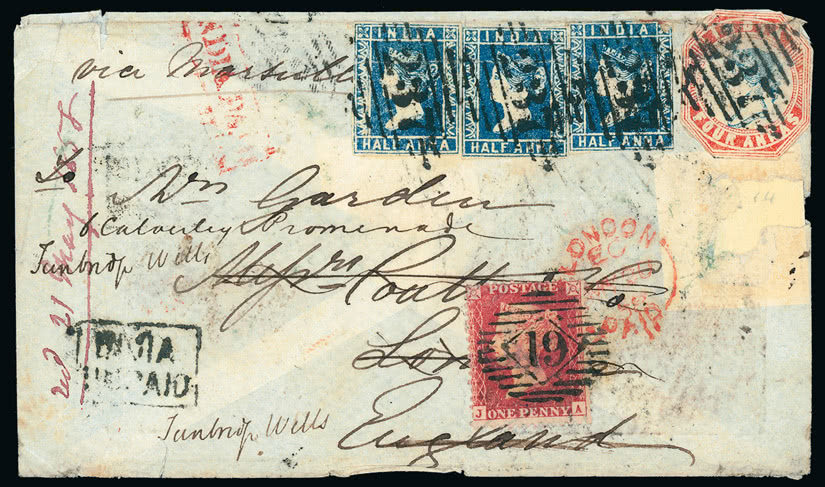 via Marseilles
INDIA
HALF ANNA
INDIA
HALF ANNA
INDIA
HALF ANNA
231
231
231
231
FOUR ANNAS
INDIA PAID
To
Mrs Garden
6 Calverley Promenade
Tunbridge Wells
Messrs Coutts & Co.
London
England
LONDON
PAID
POSTAGE
19
J ONE PENNY A
INDIA
UNPAID
Tunbridge Wells